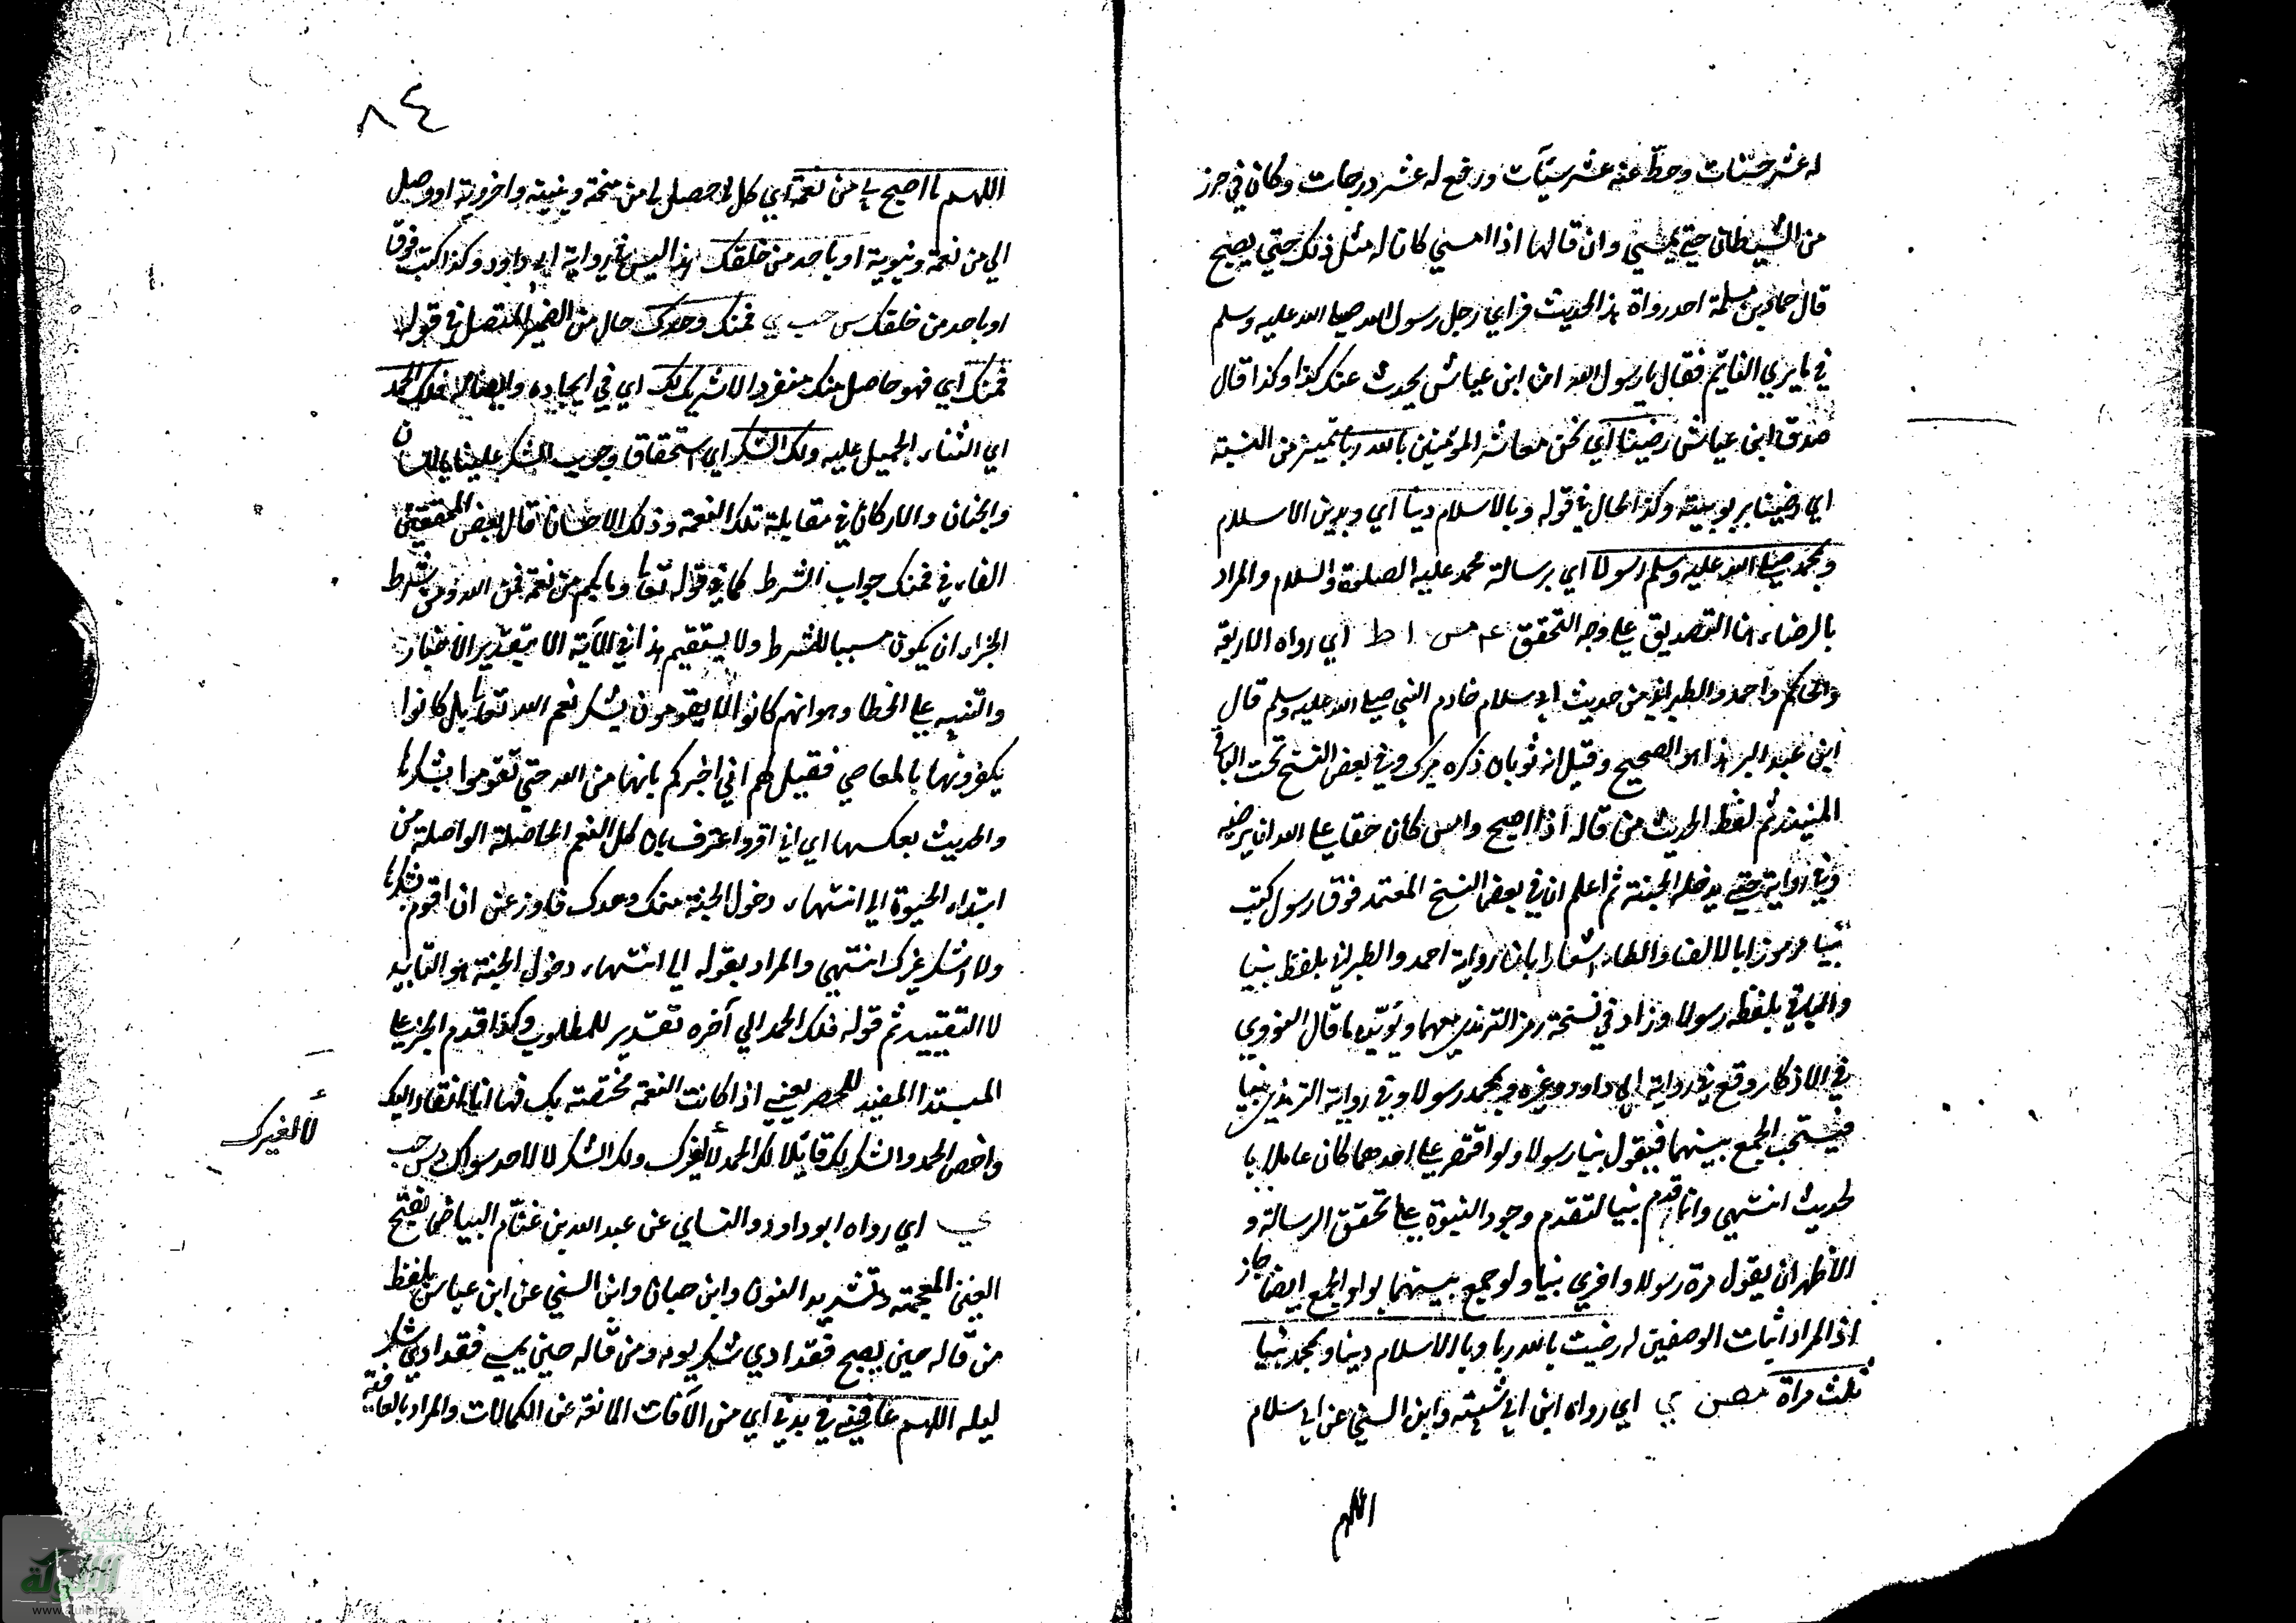 له عشر حسنات وحطّ عنه عشر سيّآت ورفع له عشر درجات وكان في حرز
من الشيطان حتي يمسي وان قالها اذا امسي كان له مثل ذلك حتي يصبح
قال حماد بن سلمة احد رواة هذا الحديث فراي رجل رسول الله صلي الله عليه وسلم
في ما يري النائم فقال يا رسول الله ان ابن عياش يحدث عنك كذا وكذا قال
صدق ابن عياش رضينا اي نحن معاشر المؤمنين بالله ربا تمييز من النسبة
اي رضينا بربوبيته وكذا الحال في قوله وبالاسلام دينا اي وبدين الاسلام
وبمحمد صلي الله عليه وسلم رسولا اي برسالة محمد عليه الصلوة والسلام والمراد
بالرضاء هنا التصديق علي وجه التحقق عه مس ا ط اي رواه الاربعة
والحاكم واحمد والطبراني من حديث ابي سلام خادم النبي صلي الله عليه وسلم قال
ابن عبد البر هذا هو الصحيح وقيل انه ثوبان ذكره ميرك وفي بعض النسخ تحت
المنيذر ثم لفظ الحديث من قاله اذا اصبح وامسي كان حقا علي الله ان يرضيه
وفي رواية حتي يدخله الجنة ثم اعلم ان في بعض النسخ المعتمد فوق رسول كتب
نبيا مرموزا بالالف والطاء اشعارا بان رواية احمد والطبراني بلفظ نبيا
والباقي بلفظ رسولا وزاد في نسخة رمز الترمذي معهما ويؤيّده ما قال النووي
في الاذكار وقع في رواية ابي داود وغيره وبمحمد رسولا وفي رواية الترمذي نبيا
فيستحب الجمع بينهما فيقول نبيا رسولا ولو اقتصر علي احدهما كان عاملا با
لحديث انتهي وانما قدم نبيا لتقدم وجود النبوة علي تحقق الرسالة و
الاظهر ان يقول مرة رسولا واخري نبيا ولو جمع بينهما بواو الجمع ايضا جاز
اذ المراد اثبات الوصفين له رضيت بالله ربا وبالاسلام دينا وبمحمد نبيا
ثلث مراة مص ي اي رواه ابن ابي شيبة وابن السني عن ابي سلام
اللهم
٨٤
اللهم ما اصبح لي من نعمة اي كل ما حصل لي من منحة دينية واخروية او وصل
الي من نعمة دنيوية او باحد من خلقك هذا ليس في رواية ابي داود وكذا كتب فوق
او باحد من خلقك س حب ي فمنك وحدك حال من الضمير المتصل في قوله
فمنك اي فهو حاصل منك منفردا لا شريك لك اي في ايجاده وايصاله فلك الحمد
اي الثناء الجميل عليه ولك الشكر اي استحقاق وجوب الشكر علينا باللسان
والجنان والاركان في مقابلة تلك النعمة وذلك الاحسان قال بعض المحققين
الفاء في فمنك جواب الشرط كما في قوله تعا وما بكم من نعمة فمن الله ومن شرط
الجزاء ان يكون مسببا للشرط ولا يستقيم هذا في الآية الا بتقدير الاخبار
والتنبيه علي الخطا وهو انهم كانوا لا يقومون بشكر نعم الله تعا بل كانوا
يكفرونها بالمعاصي فقيل لهم اني اخبركم بانها من الله حتي تقوموا بشكرها
والحديث بعكسها اي اني اقر واعترف بان كل النعم الحاصلة الواصلة من
ابتداء الحيوة الي انتهاء دخول الجنة منك وحدك فاوزعني ان اقوم بشكرها
ولا اشكر غيرك انتهي والمراد بقوله الي انتهاء دخول الجنة هو التابيد
لا التقييد ثم قوله فلك الحمد الي آخره تقدير للمطلوب وكذا قدم الخبر علي
المبتدا المفيد للحصر يعني اذا كانت النعمة مختصة بك فها انا انقاد اليك
واخص الحمد والشكر لك قائلا لك الحمد لا لغيرك ولك الشكر لا لاحد سواك د س حب
لا لغيرك
ي اي رواه ابو داود والنساي عن عبد الله بن غنّام البياضي بفتح
الغين المعجمة وتشديد النون وابن حبان وابن السني عن ابن عباس بلفظ
من قاله حين يصبح فقد ادي شكر يومه ومن قاله حين يمسي فقد ادي شكر
ليله اللهم عافني في بدني اي من الآفات المانعة عن الكمالات والمراد بالعافية
شبكة
الألوكة
www.alukah.net